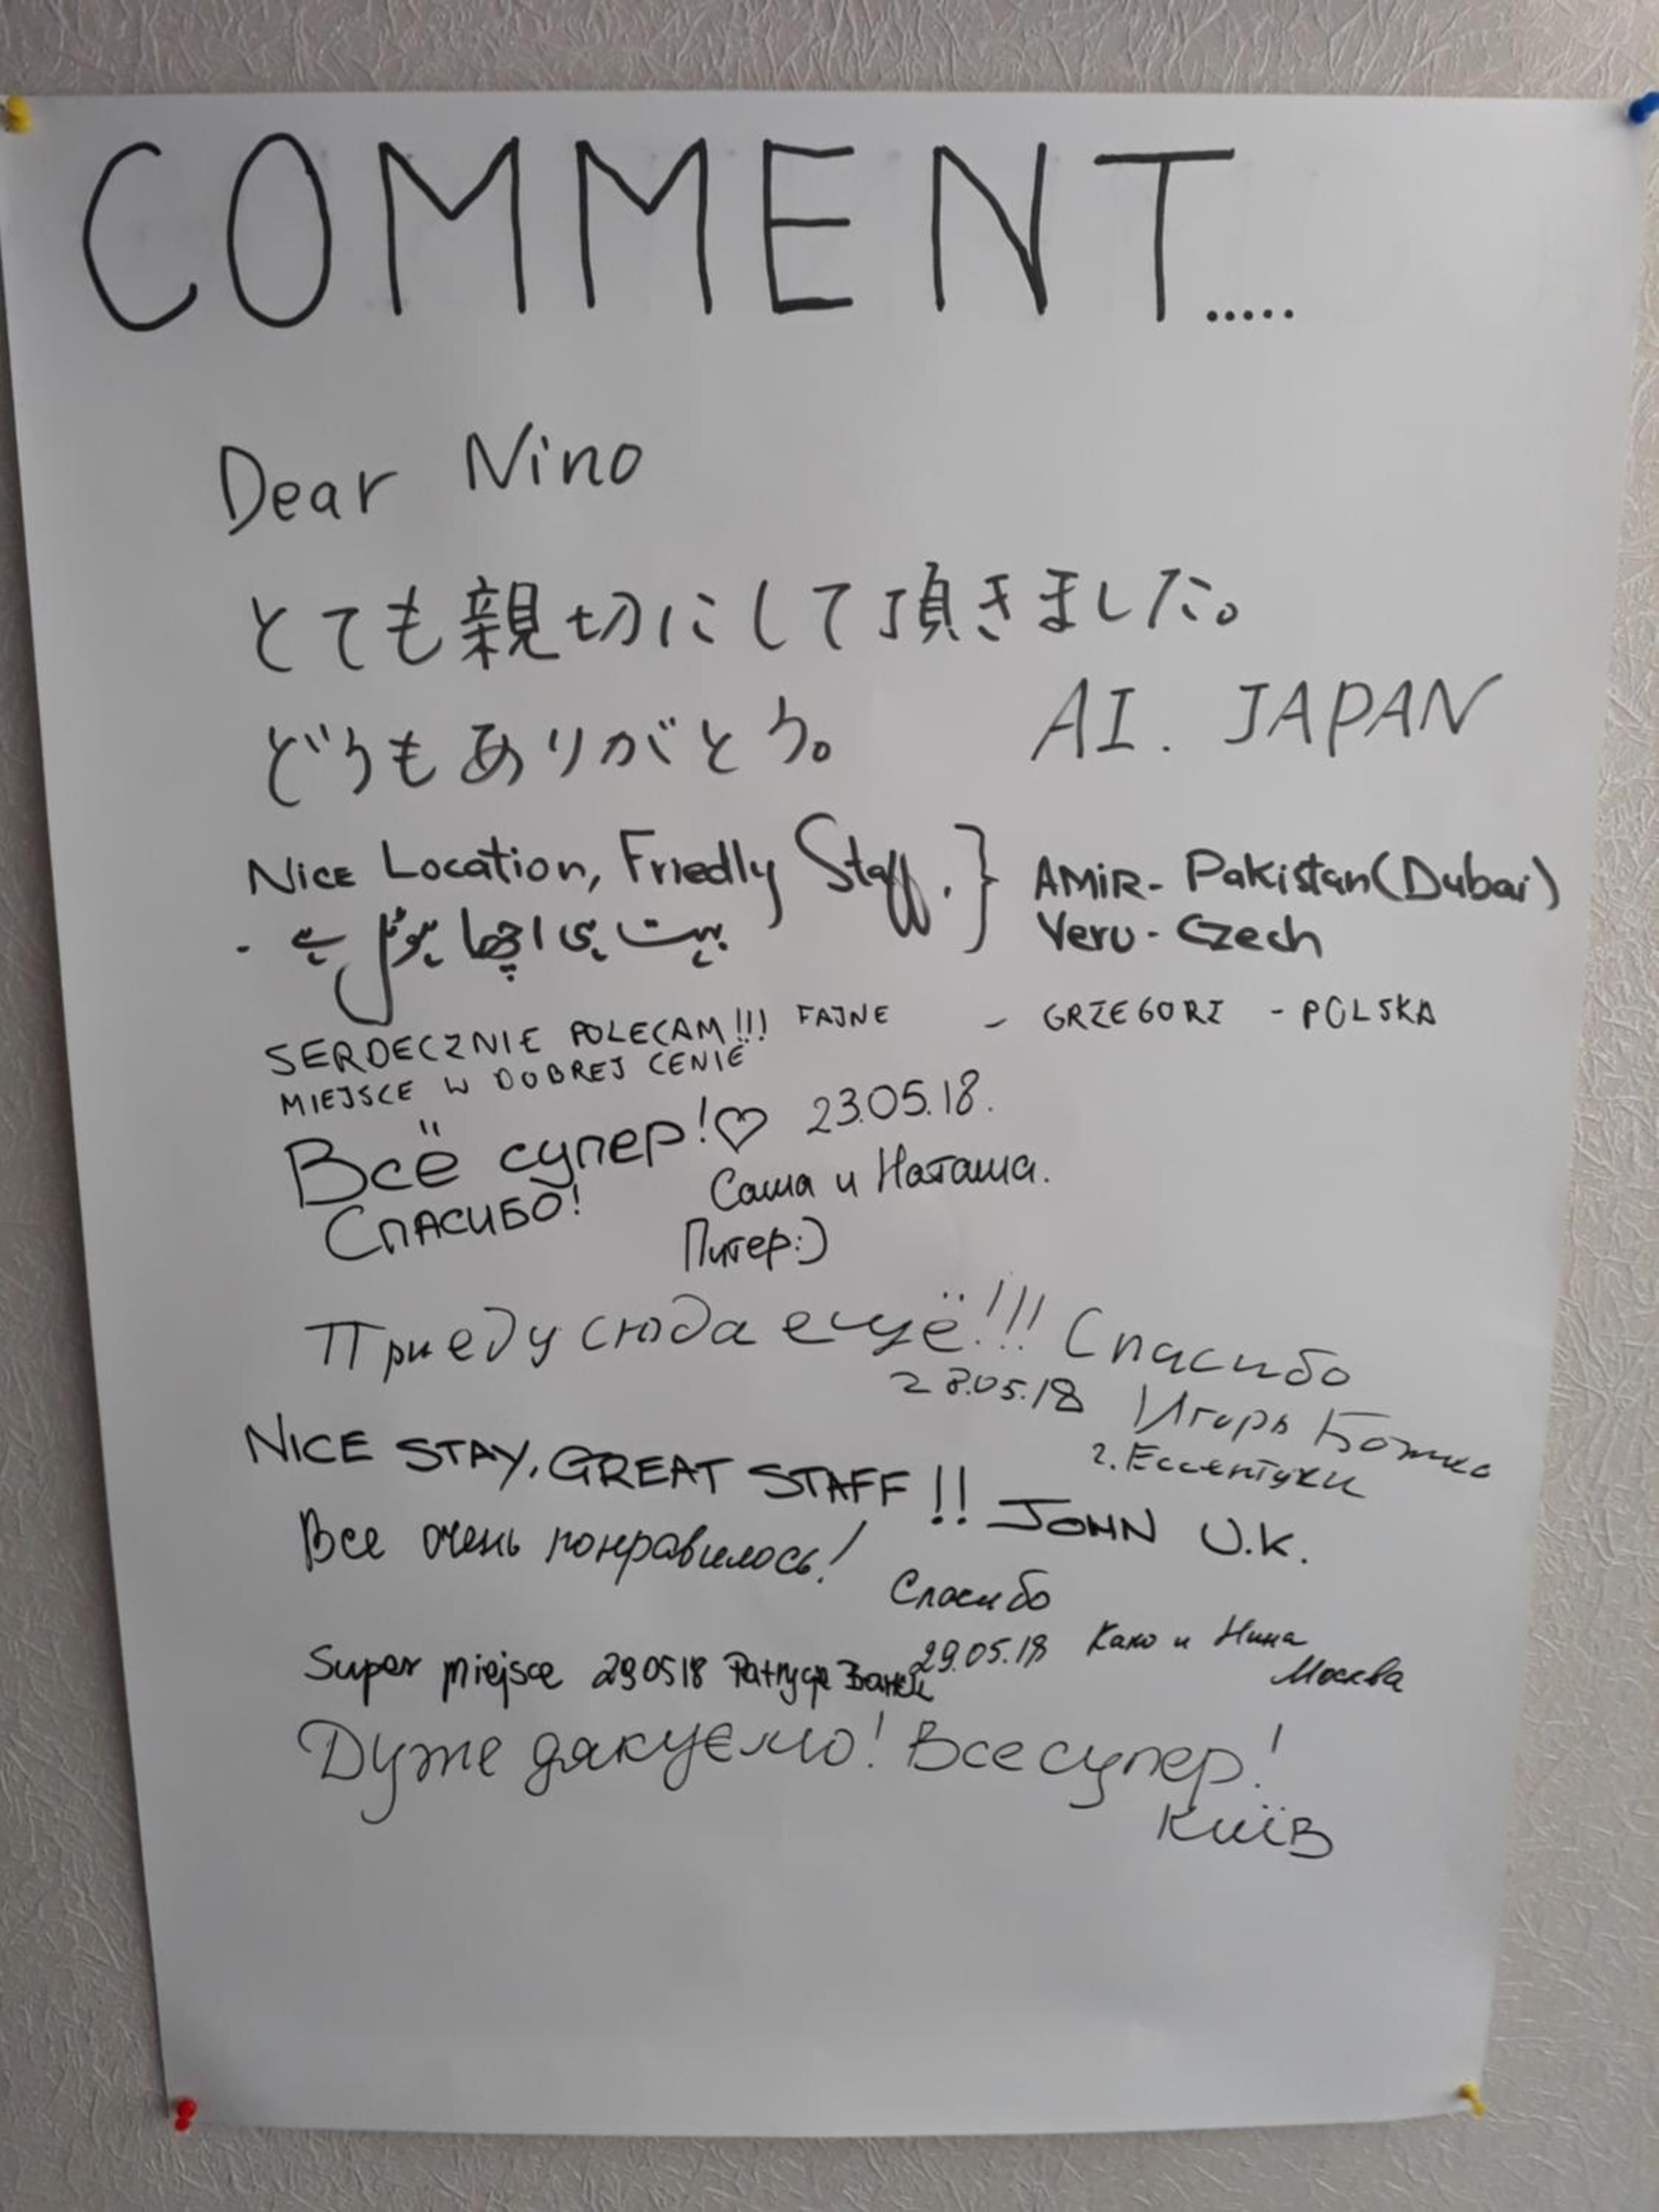 COMMENT.....
Dear Nino
とても親切にして頂きました。
どうもありがとう。 AI. JAPAN
Nice Location, Friedly Staff. } AMiR- Pakistan(Dubai)
بہت ہی اچھا ہوٹل ہے - Veru - Czech
SERDECZNIE POLECAM!!! FAJNE - GRZEGORZ - POLSKA
MIEJSCE W DOBREJ CENIE
Всё супер!♡ 23.05.18.
Спасибо! Саша и Наташа.
Питер:)
Приеду сюда ещё!!! Спасибо
28.05.18 Игорь Божко
г. Ессентуки
NICE STAY, GREAT STAFF!! JOHN U.K.
Все очень понравилось!
Спасибо
29.05.18 Како и Нина
Москва
Super miejsce 290518
Дуже дякуємо! Все супер!
Київ